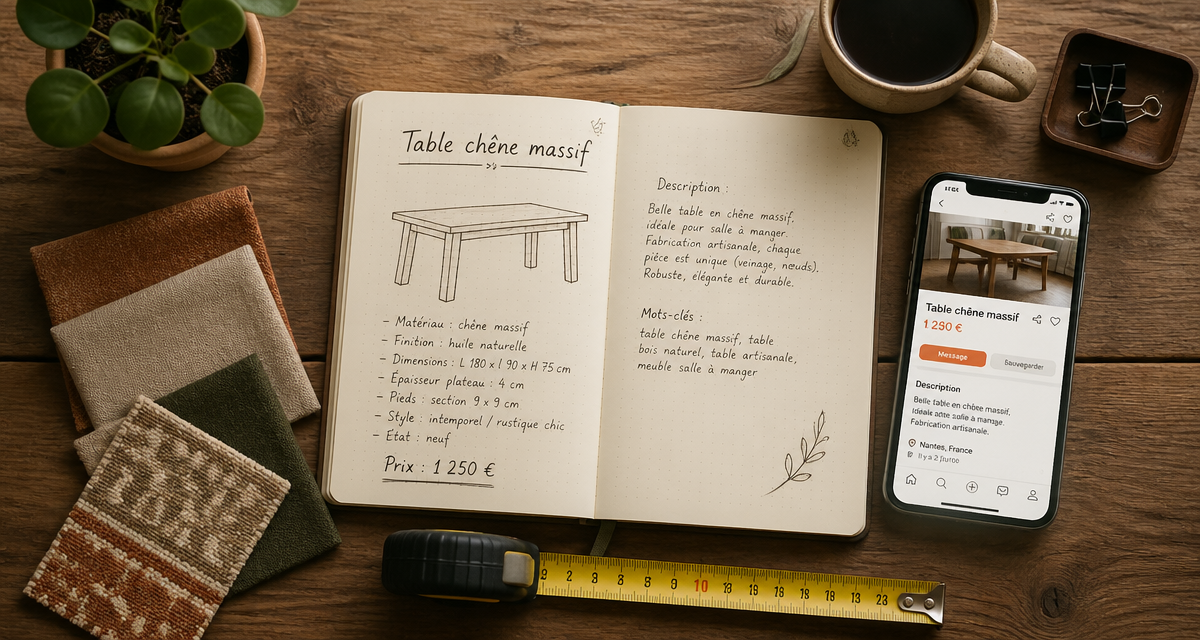 Table chêne massif
– Matériau : chêne massif
– Finition : huile naturelle
– Dimensions : L 180 x l 90 x H 75 cm
– Épaisseur plateau : 4 cm
– Pieds : section 9 x 9 cm
– Style : intemporel / rustique chic
– État : neuf
Prix : 1 250 €
Description :
Belle table en chêne massif.
idéale pour salle à manger.
Fabrication artisanale, chaque
pièce est unique (veinage, nœuds).
Robuste, élégante et durable.
Mots-clés :
table chêne massif, table
bois naturel, table artisanale,
meuble salle à manger
Table chêne massif
1 250 €
Message
Sauvegarder
Description
Belle table en chêne massif,
à manger.
Fabrication artisanale.
Nantes, France
Il y a 2
2 3 3 8 9 10 13 18 16 18 13 23